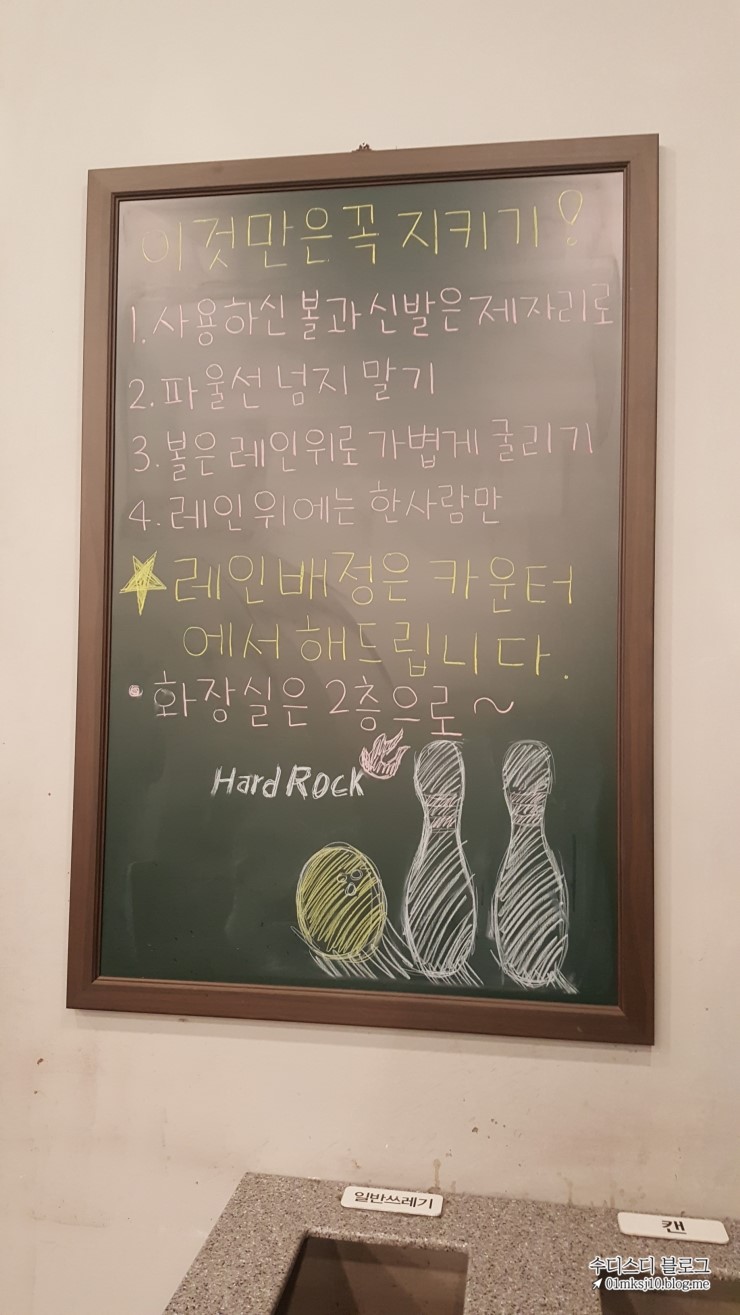 이것만은 꼭 지키기!
1. 사용하신 볼과 신발은 제자리로
2. 파울선 넘지 말기
3. 볼은 레인위로 가볍게 굴리기
4. 레인 위에는 한사람만
★레인배정은 카운터
에서 해드립니다.
• 화장실은 2층으로~
Hard Rock
일반쓰레기
캔
수디스디 블로그
01mksj10.blog.me